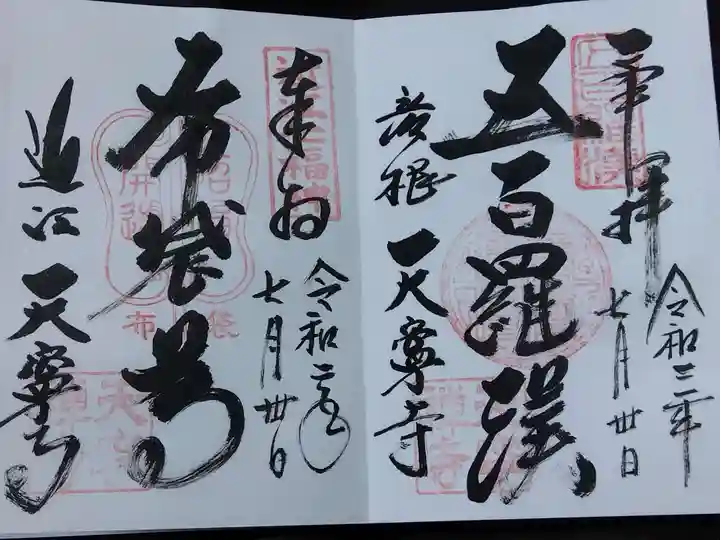 奉拝
令和三年
七月卅日
五百羅漢
彦根
天寧寺
奉拝
令和三年
七月卅日
布袋尊
近江
天寧寺
布袋